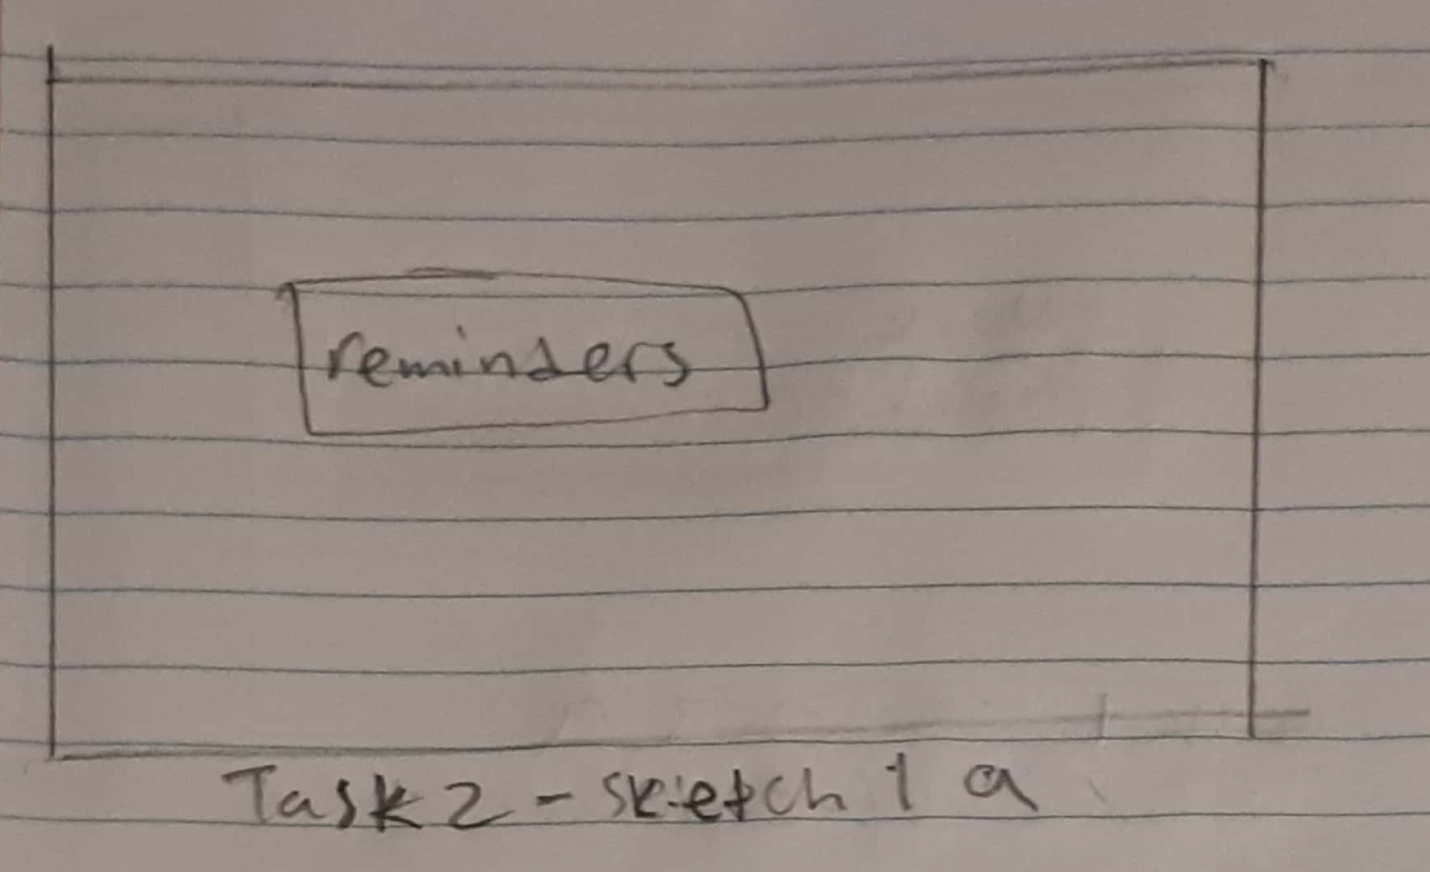 reminders
Task 2 - sketch 1 a